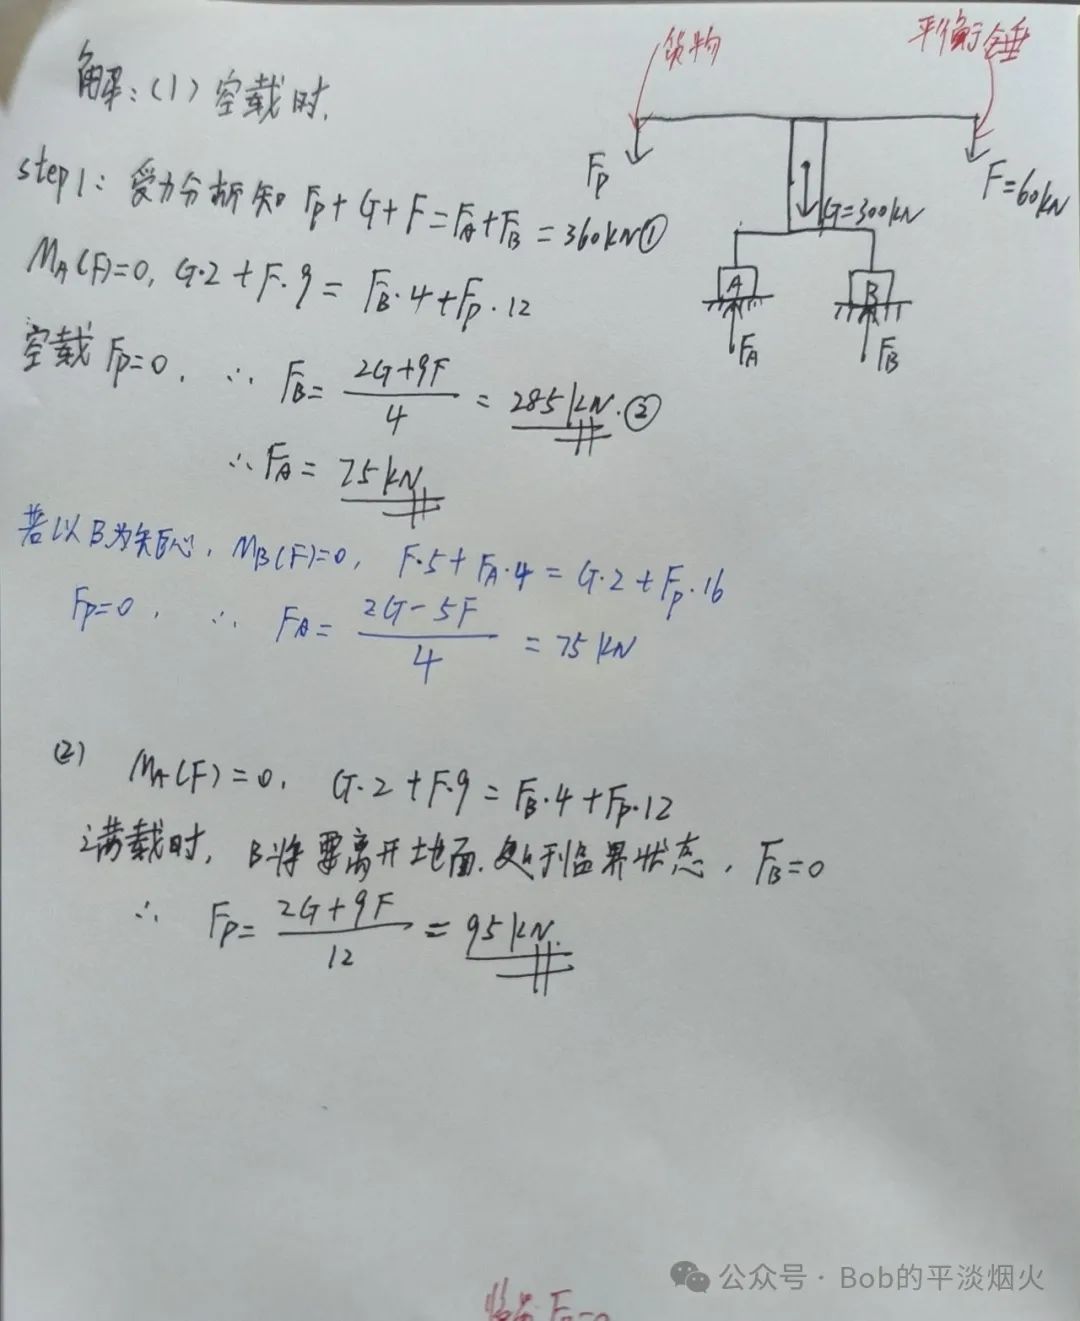 货物
平衡锤
解:(1)空载时,
Fp
F=60kN
G=300kN
A
B
FA
FB
step1: 受力分析知 Fp+G+F=FA+FB=360kN①
MA(F)=0, G·2+F·9=FB·4+Fp·12
空载Fp=0, ∴ FB= 2G+9F/4 = 285kN.②
∴FA= 75kN
若以B为矩心, MB(F)=0, F·5+FA·4=G·2+Fp·16
Fp=0, ∴ FA= 2G-5F/4 = 75kN
(2) MA(F)=0, G·2+F·9=FB·4+Fp·12
满载时, B将要离开地面.处于临界状态, FB=0
∴ Fp= 2G+9F/12 = 95kN.
公众号 · Bob的平淡烟火